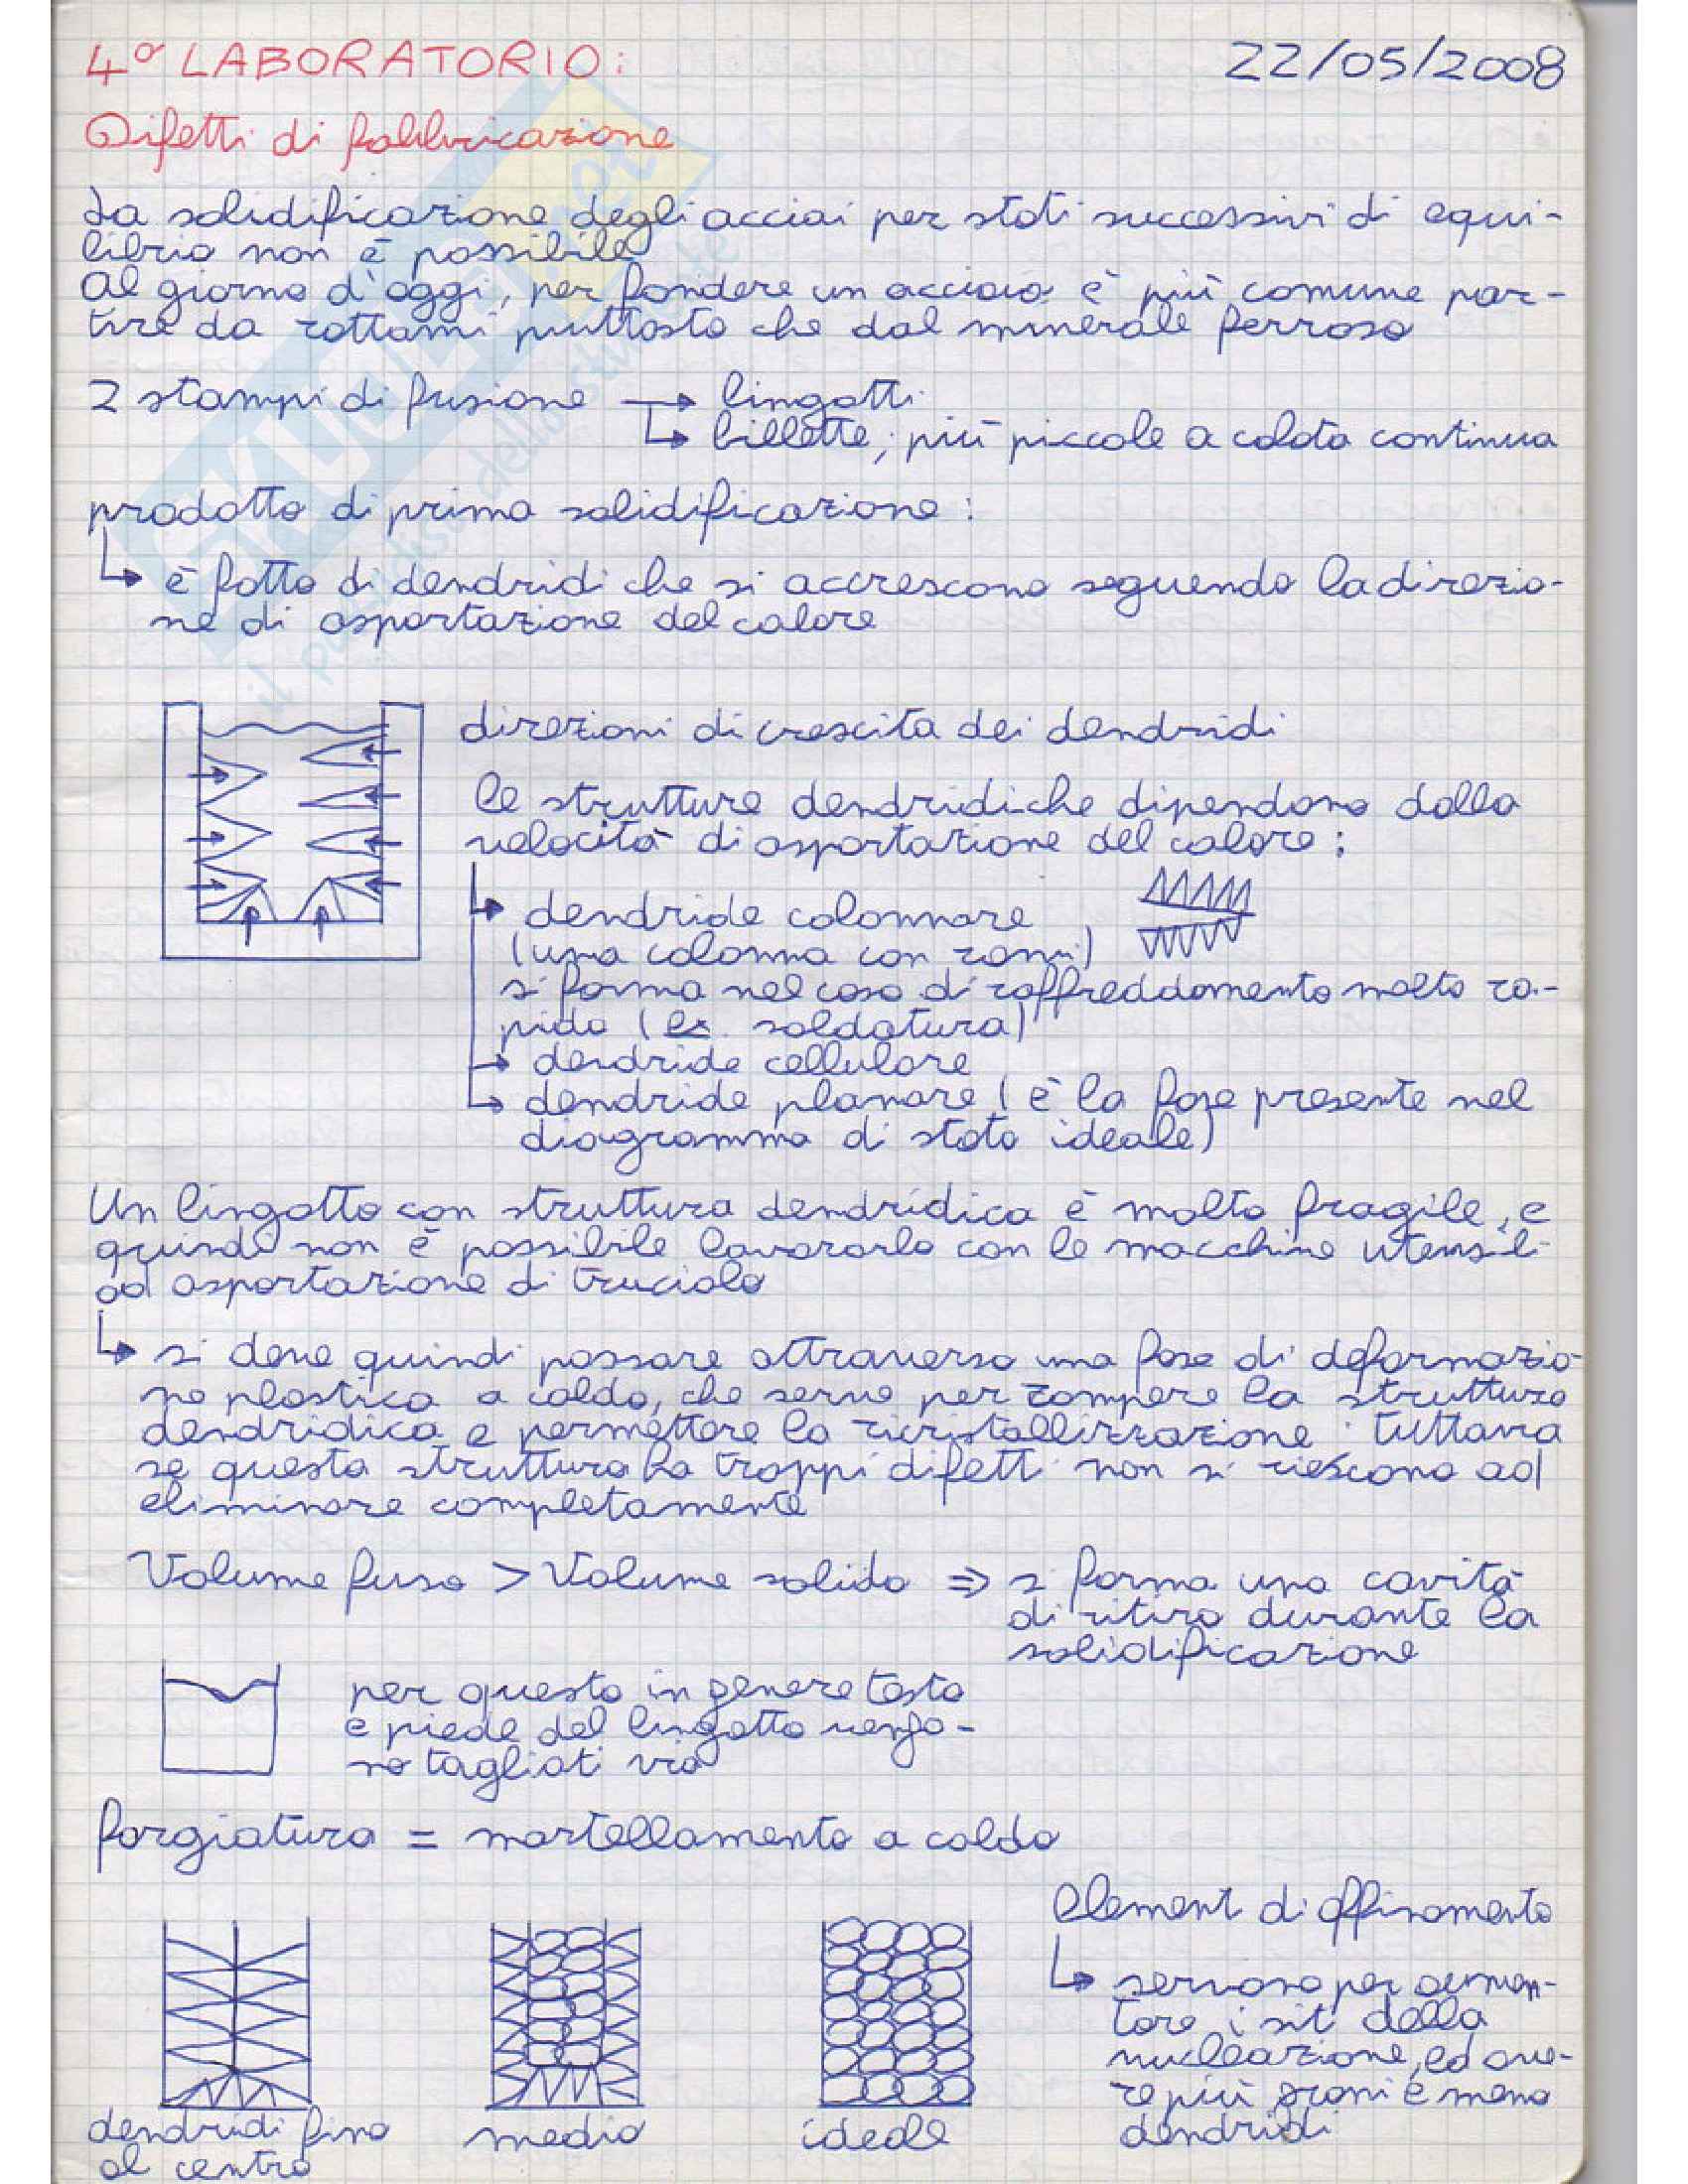 4° LABORATORIO:
22/05/2008
Difetti di fabbricazione
La solidificazione degli acciai per stati successivi di equi-
librio non è possibile
Al giorno d'oggi, per fondere un acciaio è più comune par-
tire da rottami piuttosto che dal minerale ferroso
2 stampi di fusione → lingotti
↳ billette, più piccole a colata continua
prodotto di prima solidificazione:
↳ è fatto di dendridi che si accrescono seguendo la direzio-
ne di asportazione del calore
direzioni di crescita dei dendridi
le strutture dendridiche dipendono dalla
velocità di asportazione del calore:
↳ dendride colonnare
(una colonna con rami)
si forma nel caso di raffreddamento molto ra-
pido (es. saldatura)
→ dendride cellulare
↳ dendride planare (è la fase presente nel
diagramma di stato ideale)
Un lingotto con struttura dendridica è molto fragile, e
quindi non è possibile lavorarlo con le macchine utensili
ad asportazione di truciolo
↳ si deve quindi passare attraverso una fase di deformazio-
ne plastica a caldo, che serve per rompere la struttura
dendridica e permettere la ricristallizzazione. Tuttavia
se questa struttura ha troppi difetti non si riescono ad
eliminare completamente
Volume fuso > Volume solido ⇒ si forma una cavità
di ritiro durante la
solidificazione
per questo in genere testa
e piede del lingotto vengo-
no tagliati via
forgiatura = martellamento a caldo
Elementi di affinamento
↳ servono per aumen-
tare i siti della
nucleazione, ed ave-
re più grani e meno
dendridi
dendridi fino
al centro
medio
ideale
SKUOLA.net
il paradiso dello studente